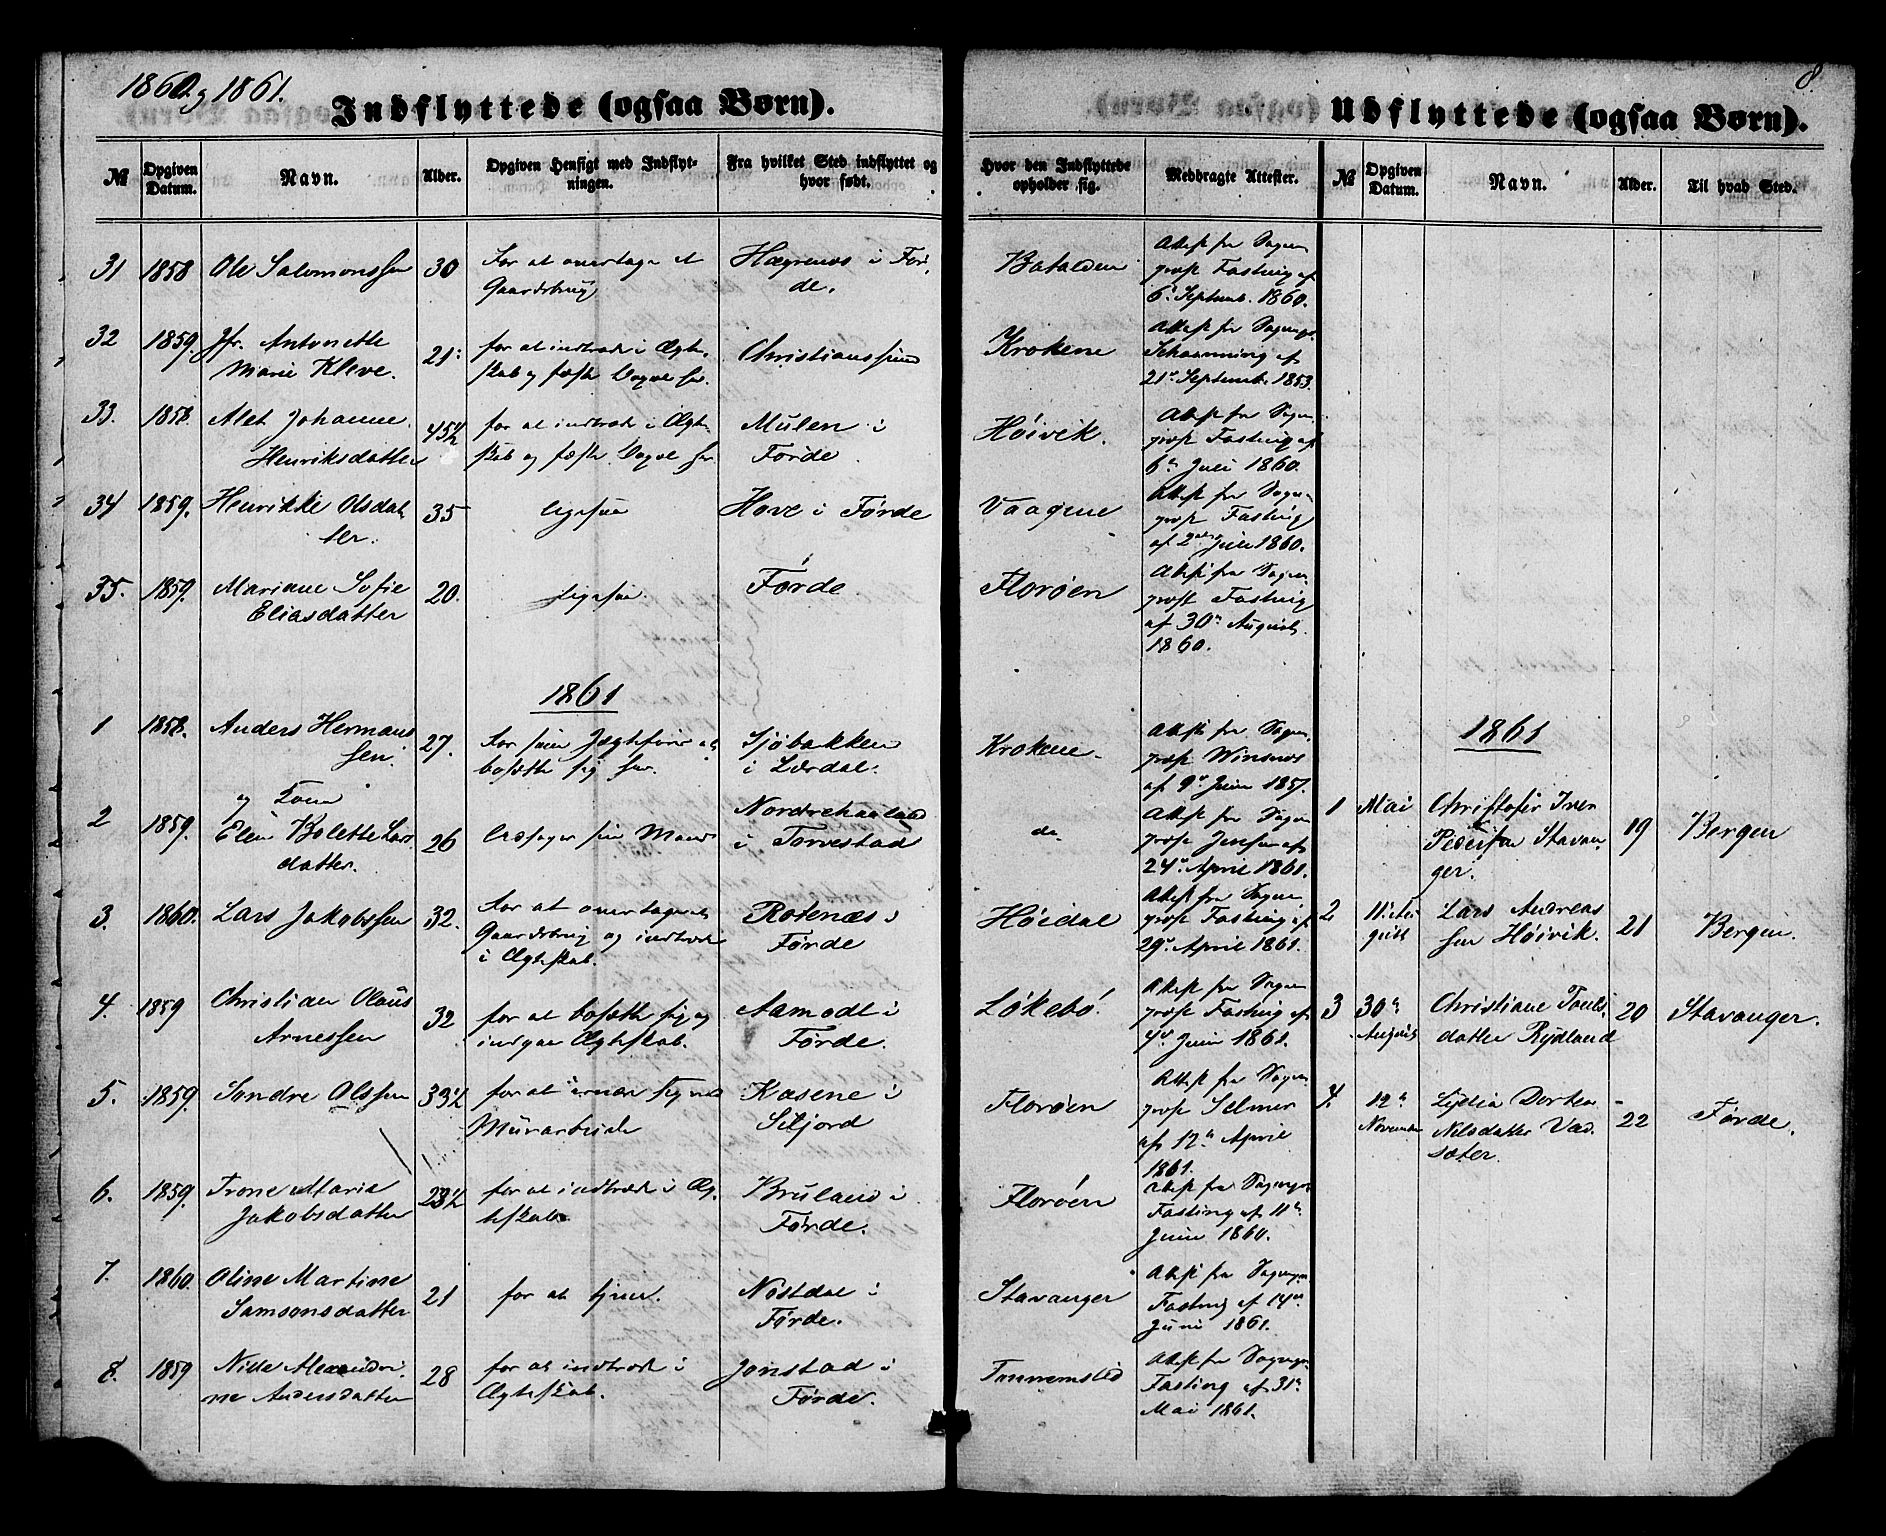 1860 og 1861.
8.
Indflyttede (ogsaa Børn).
Udflyttede (ogsaa Børn).
№
Opgiven Datum.
Navn.
Alder.
Opgiven Hensigt med Indflyt-
ningen.
Fra hvilket Sted indflyttet og
hvor født.
Hvor den Indflyttede
opholder sig.
Medbragte Attester.
№
Opgiven
Datum.
Navn.
Alder.
Til hvad Sted.
31 1858 Ole Salomonssen 30
For at overtage et
Gaardsbrug
Hægrenes i Før-
de.
Batalden
Attest fra Sogne-
prost Fasting af
6te Septemb. 1860.
32 1859. Jfr. Antonette
Marie Kleve.
21
for at indtræde i Ægte-
skab og fæste Bopæl her.
Christianssund
Krokene
Attest fra Sognepr.
Schanning af
21de Septemb. 1853.
33. 1858. Alet Johanne
Henriksdatter
45½
for at indtræde i Ægte-
skab og fæste Bopæl her.
Mulen i
Førde
Høivik.
Attest fra Sogne-
prost Fasting af
6te Juli 1860.
34 1859. Henrikke Olsdat-
ter.
35
ligesaa
Hove i Førde
Vaagene
Attest fra Sogne-
prost Fasting
af 2den Juli 1860.
35. 1859. Mariane Sofie
Eliasdatter
20.
ligesaa.
Førde
Florøen
Attest fra Sogne-
prost Fasting
af 30te August
1860.
1861
1 1858. Anders Hermans-
sen.
27.
bosætte sig her.
Sjøbakken
i Lærdal.
Krokene.
Attest fra Sogne-
prost Winsnes
af 9de Juni 1857.
2 1859. og Kone
Elen Bolette Lars-
datter.
26
ledsager sin Mand
Nordrehaaland
i Torvestad
do
Attest fra Sogne-
prost Jensen af
24de April 1861.
3. 1860. Lars Jakobssen 32.
For at overtage et
Gaardsbrug og indtræde
i Ægteskab.
Rotenæs i
Førde
Høidal
Attest fra Sogne-
prost Fasting af
29de April 1861.
4. 1859 Christian Olaus
Arnessen
32
for at bosætte sig og
indgaa Ægteskab.
Aamodt i
Førde.
Løkebø.
Attest fra Sogne-
prost Fasting af
4de Juni 1861.
5. 1859. Sondre Olssen 33½
for at ernære sig ved
Murarbeide
Kasene i
Siljord
Florøen
Attest fra Sogne-
prost Selmer
af 12te April
1861.
6. 1859. Trone Marie
Jakobsdatter
23½
for at indtræde i Æg-
teskab
Bruland i
Førde.
Florøen
Attest fra Sognepr.
Fasting af 11te
Juni 1860.
7. 1860. Oline Martine
Samsonsdatter
21
for at tjene.
Nøstdal i
Førde.
Stavanger
Attest fra Sognepr.
Fasting af 14de
Juni 1861.
8. 1859 Nille Alexandri-
ne Andersdatter
28
for at indtræde i
Ægteskab.
Jonstad i
Førde.
Attest fra Sognepr.
Fasting af 31te
Mai 1861.
1861
1 Mai Christofer Iver
Pedersen Stavan-
ger.
19
Bergen
2 11te Au-
gust
Lars Andreas-
sen Høivik.
21
Bergen.
3 30te
August
Christiane Pouls-
datter Rydland
20
Stavanger.
4. 12te
November
Lydia Dorkea
Nilsdatter Vad-
sæter.
22
Førde.